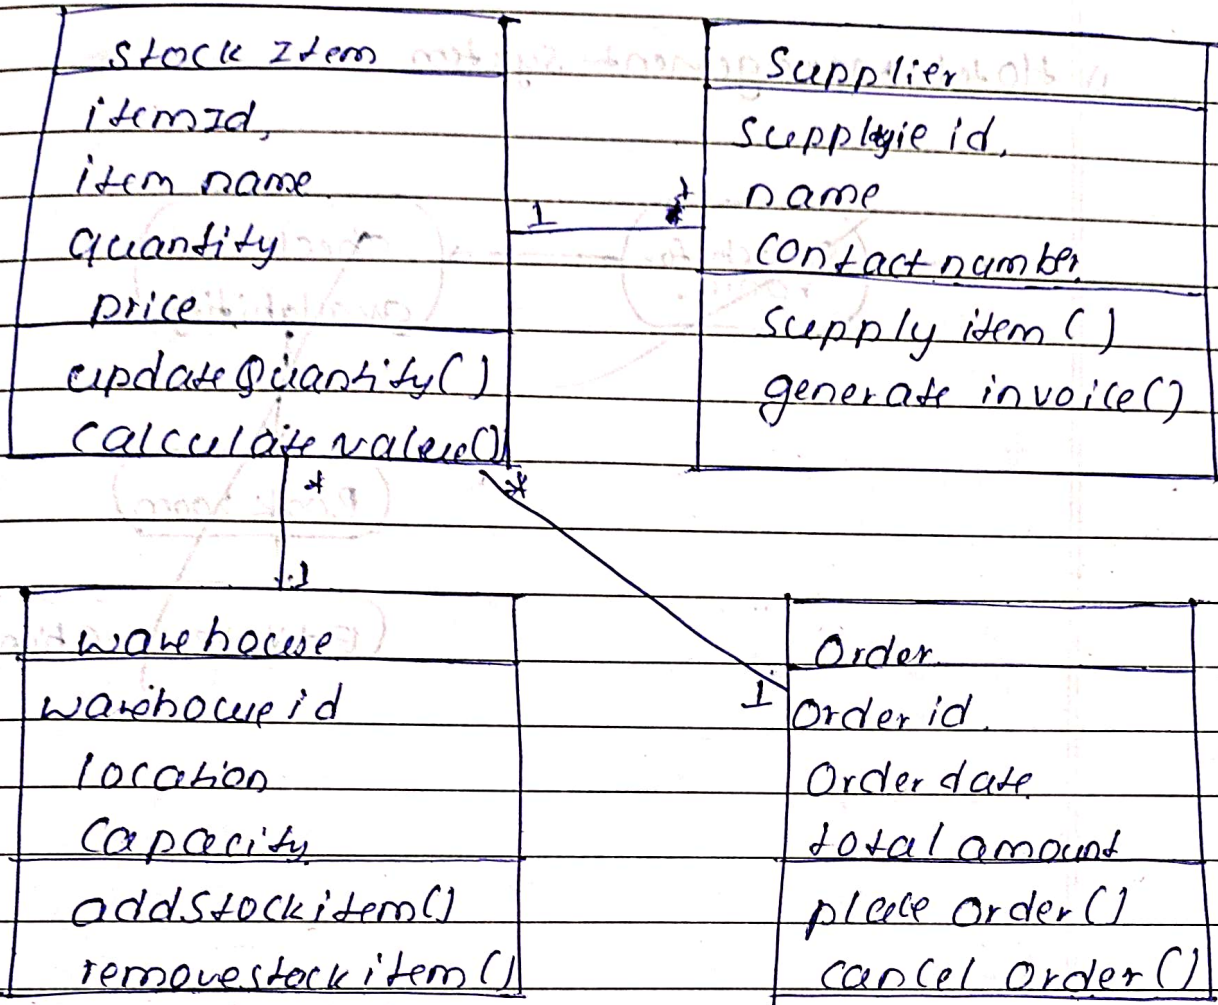 Stock Item
itemId,
item name
quantity
price
updateQuantity()
calculate value()
Supplier
name
contact number
supply item ()
generate invoice()
1
*
*
1
*
1
warehouse
location
capacity
addStockitem()
removestockitem()
Order
Order id.
Order date
total amount
place order()
cancel order()